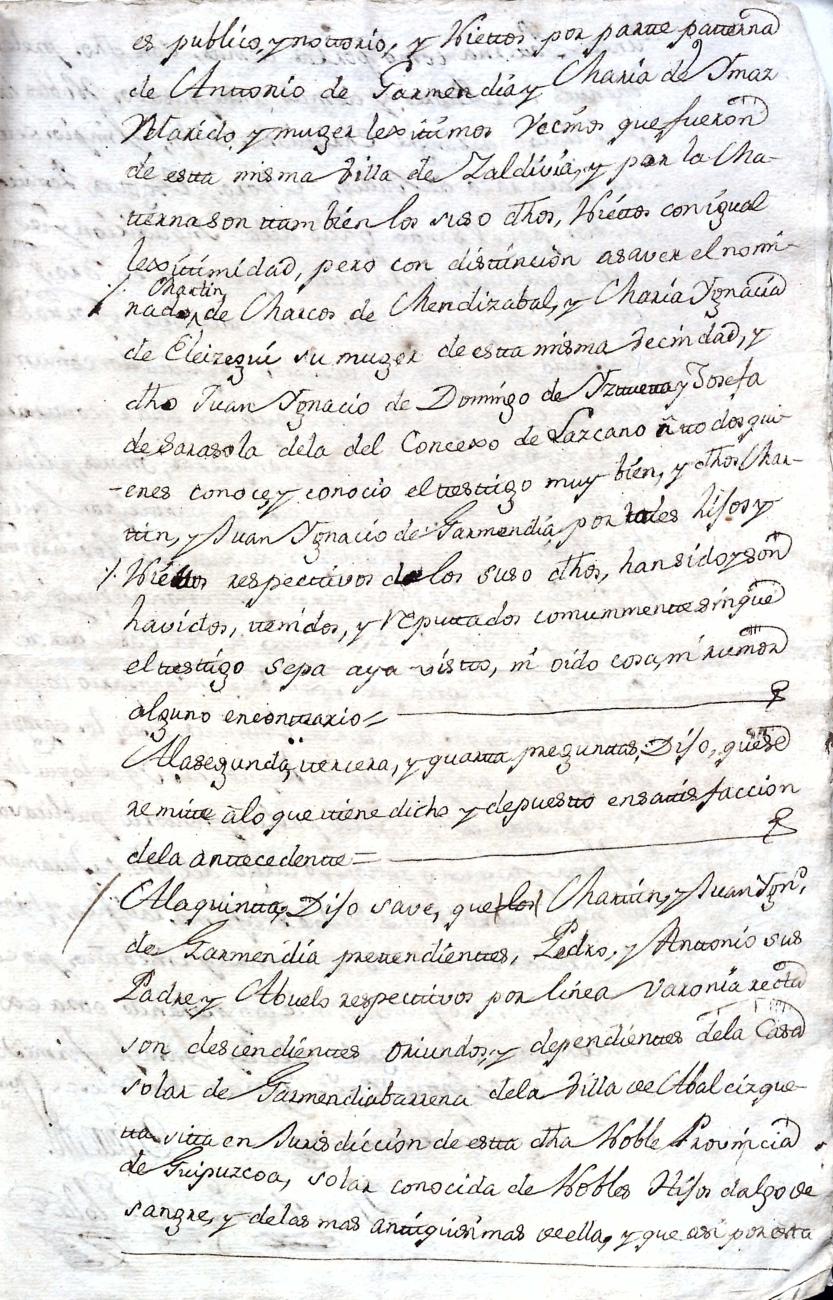 es publico, y nottorio, y Niettos por partte patterna
de Anttonio de Garmendia y Maria de Ymaz
Marido, y muger lexitimos Vecinos que fueron
de estta misma Villa de Zaldivia, y por la Ma-
tterna son ttambien los suso dhos, Niettos con igual
lexitimidad, pero con distincion asaver el nomi-
nado Martin de Marcos de Mendizabal, y Maria Ygnacia
de Eleizegui su muger de estta misma Vecindad, y
dho Juan Ygnacio de Domingo de Yztuetta y Josefa
de Sarasola dela del Concexo de Lazcano ttodos qui-
-enes conoce, y conocio el testigo muy bien, y dhos Mar-
tin, y Juan Ygnacio de Garmendia por tales hijos y
Niettos respectivos de los suso dhos, han sido y son
havidos, ttenidos, y reputtados comunmentte sin que
el testigo sepa aya visto, ni oido cosa, ni rumor
alguno en conttrario =
A la segunda, ttercera, y quartta preguntas, Dijo, que se
remite â lo que ttiene dicho y depuestto en sattisfaccion
dela anttecedentte =
A la quintta, Dijo save, que (los) Martin, y Juan Ygn.º
de Garmendia prettendienttes, Pedro, y Anttonio sus
Padre, y Abuelo respectivos por linea varonia rectta
son descendienttes oriundos, y dependienttes dela Casa
solar de Garmendiabarrena dela Villa de Abalcizque-
tta sitta en Jurisdiccion de estta dha Noble Provincia
de Guipuzcoa, solar conocida de Nobles Hijos dalgo de
sangre, y delas mas antiquisimas de ella, y que asi por estta